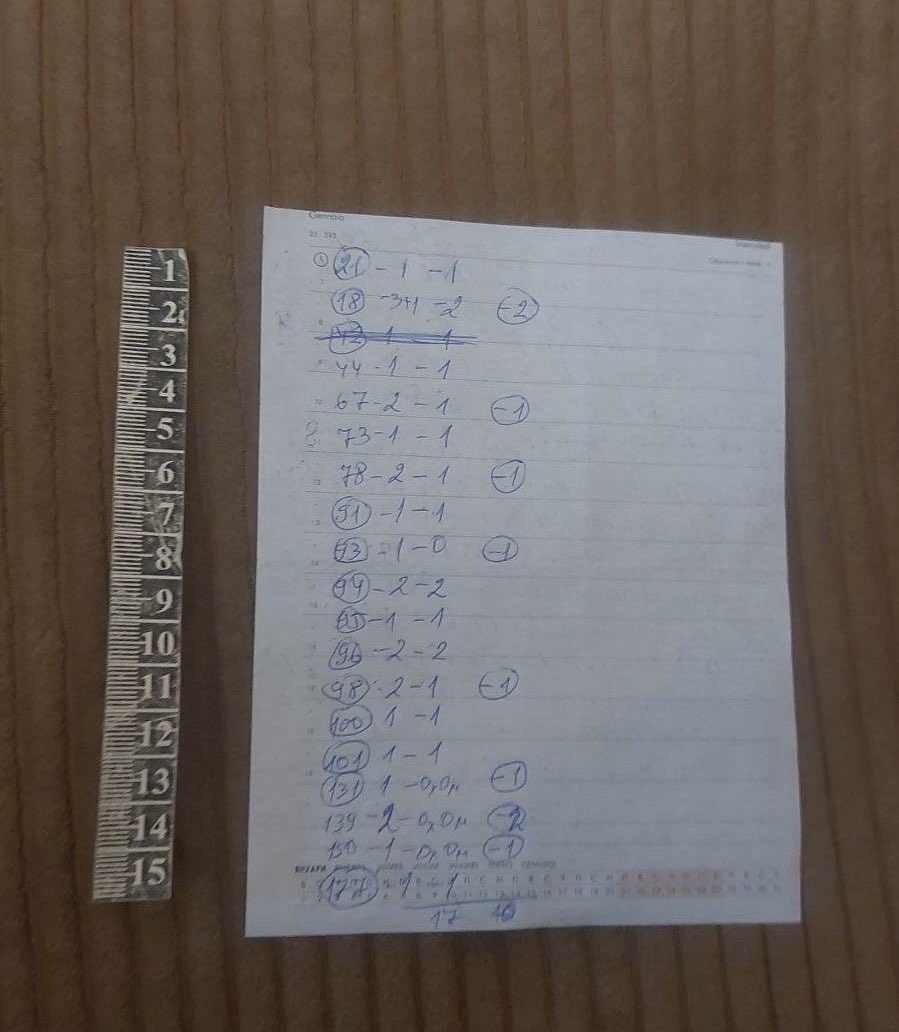 1
2
3
4
5
6
7
8
9
10
11
12
13
14
15
Gennaio
21 - 1 - 1
18 - 3+1 - 2 -2
42 - 1 - 1
44 - 1 - 1
67 - 2 - 1 -1
73 - 1 - 1
78 - 2 - 1 -1
91 - 1 - 1
93 - 1 - 0 -1
94 - 2 - 2
95 - 1 - 1
96 - 2 - 2
98 - 2 - 1 -1
100 1 - 1
101 1 - 1
131 1 -0,0м -1
139 - 2 - 0,0м -2
150 - 1 - 0,0м -1
ЯНУАРИ JANUARY GENNAIO
177 1 1
17 10